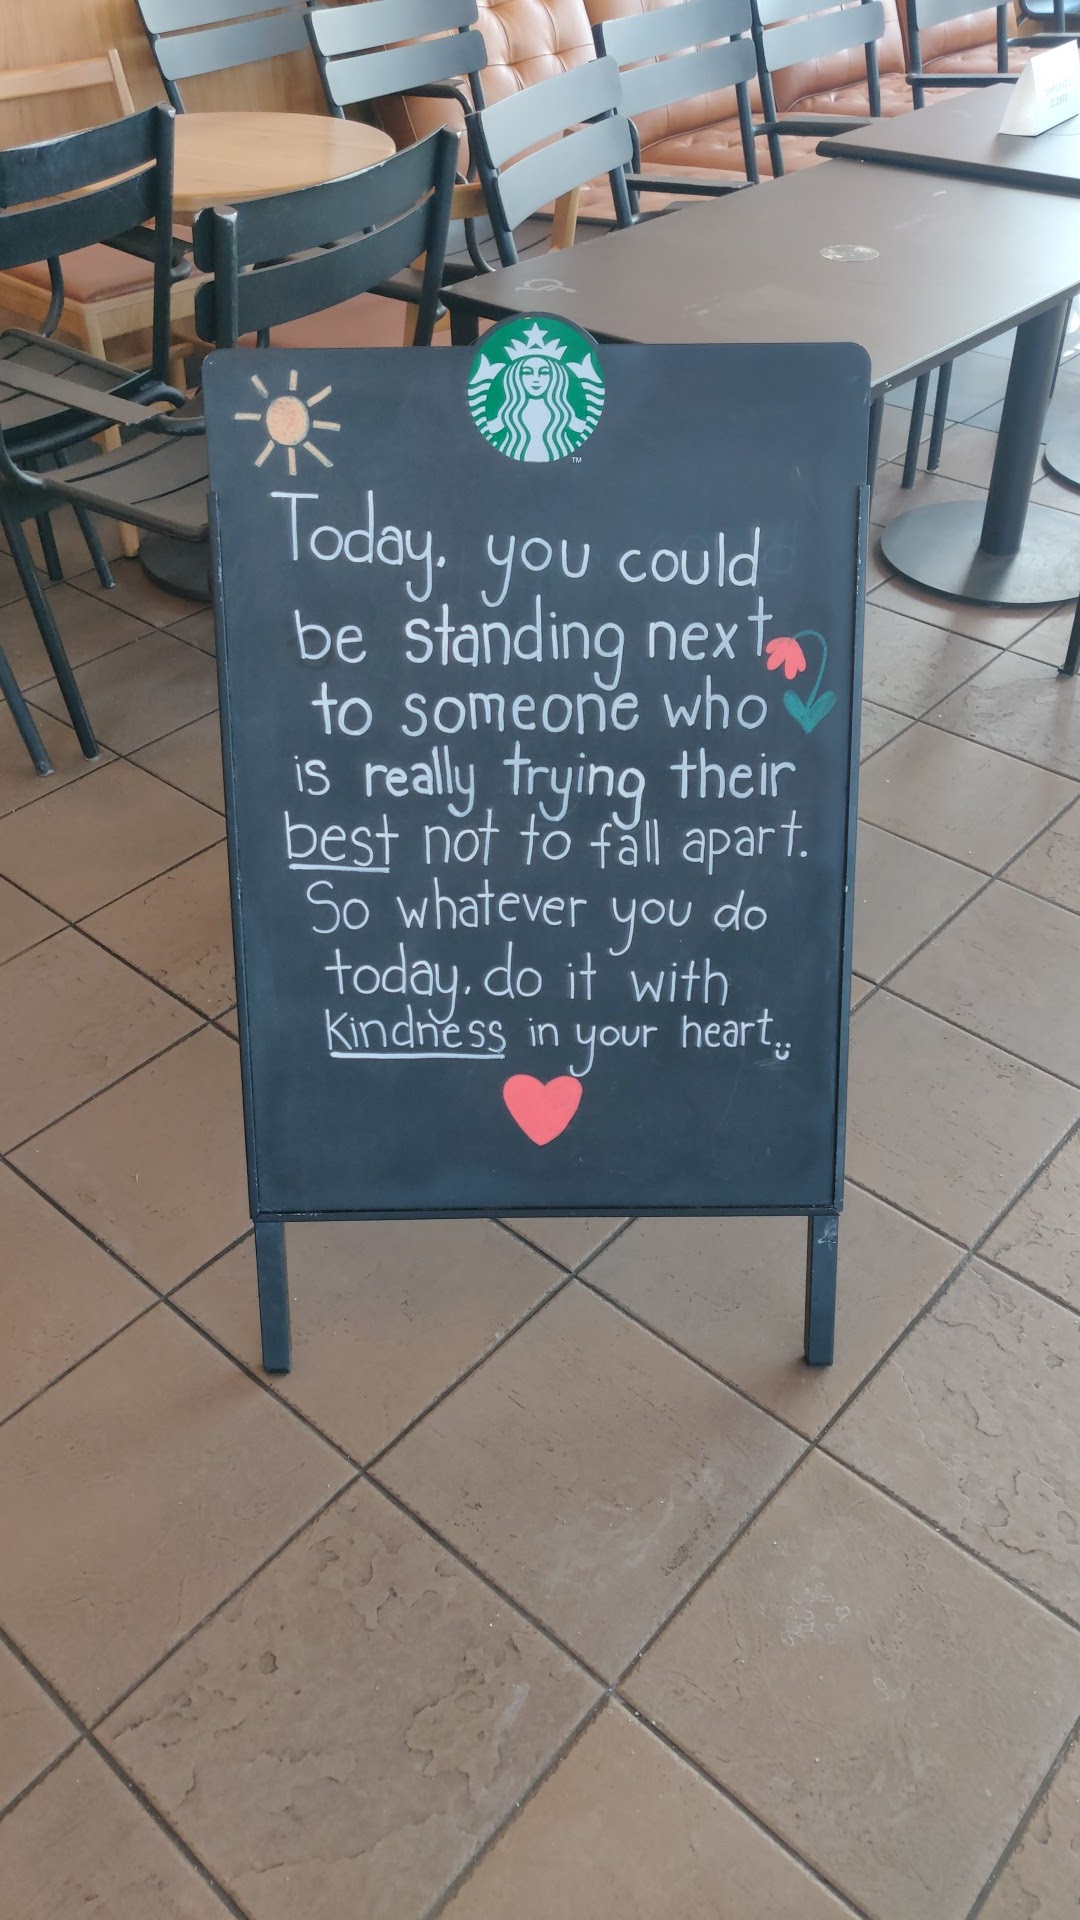 TM
Today, you could
be standing next
to someone who
is really trying their
best not to fall apart.
So whatever you do
today, do it with
Kindness in your heart.
CLOSED